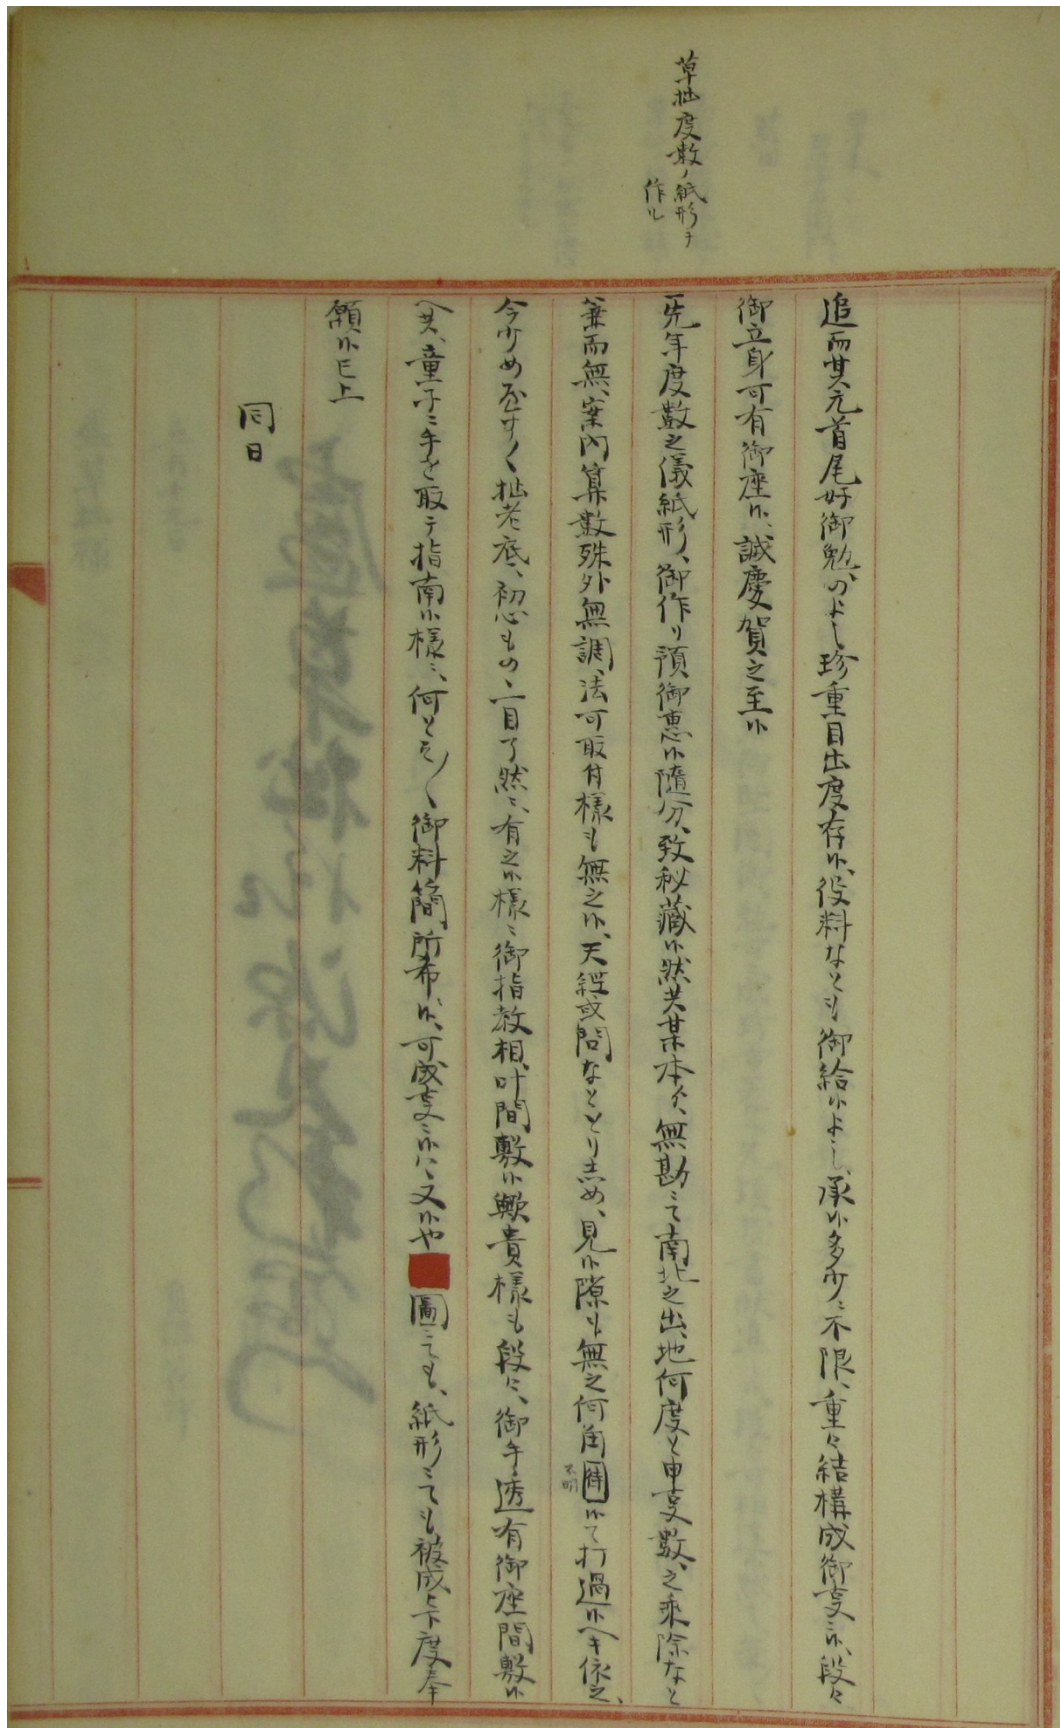 草拙度数ノ紙形ヲ
作ル
追而其元首尾好御勉のよし珍重目出度存候、役料なとも御給候よし、承候多少ニ不限、重々結構成御事ニ候、段々
御立身可有御座候、誠慶賀之至候
一先年度數之儀紙形、御作り預御惠候隨分、致秘藏候然共某本ゟ、無勘ニて南北之出地何度と申事、數之乘除なと
兼而無、案内算數殊外無調、法可取付様も無之候、天經或問なととり志め、見候隙も無之何角
不明
候て打過候へキ依之、
今少め屋すく拙老底、初心もの、一目了然ニ、有之候様ニ御指教相叶間敷候歟貴様も段々、御手透有御座間敷候
へ共、童子ニ手を取テ指南候様ニ、何とそ〳〵御料簡所希候、可成事ニ候ハヽ又候や圖ニても、紙形ニても被成被下度奉
願候已上
同日